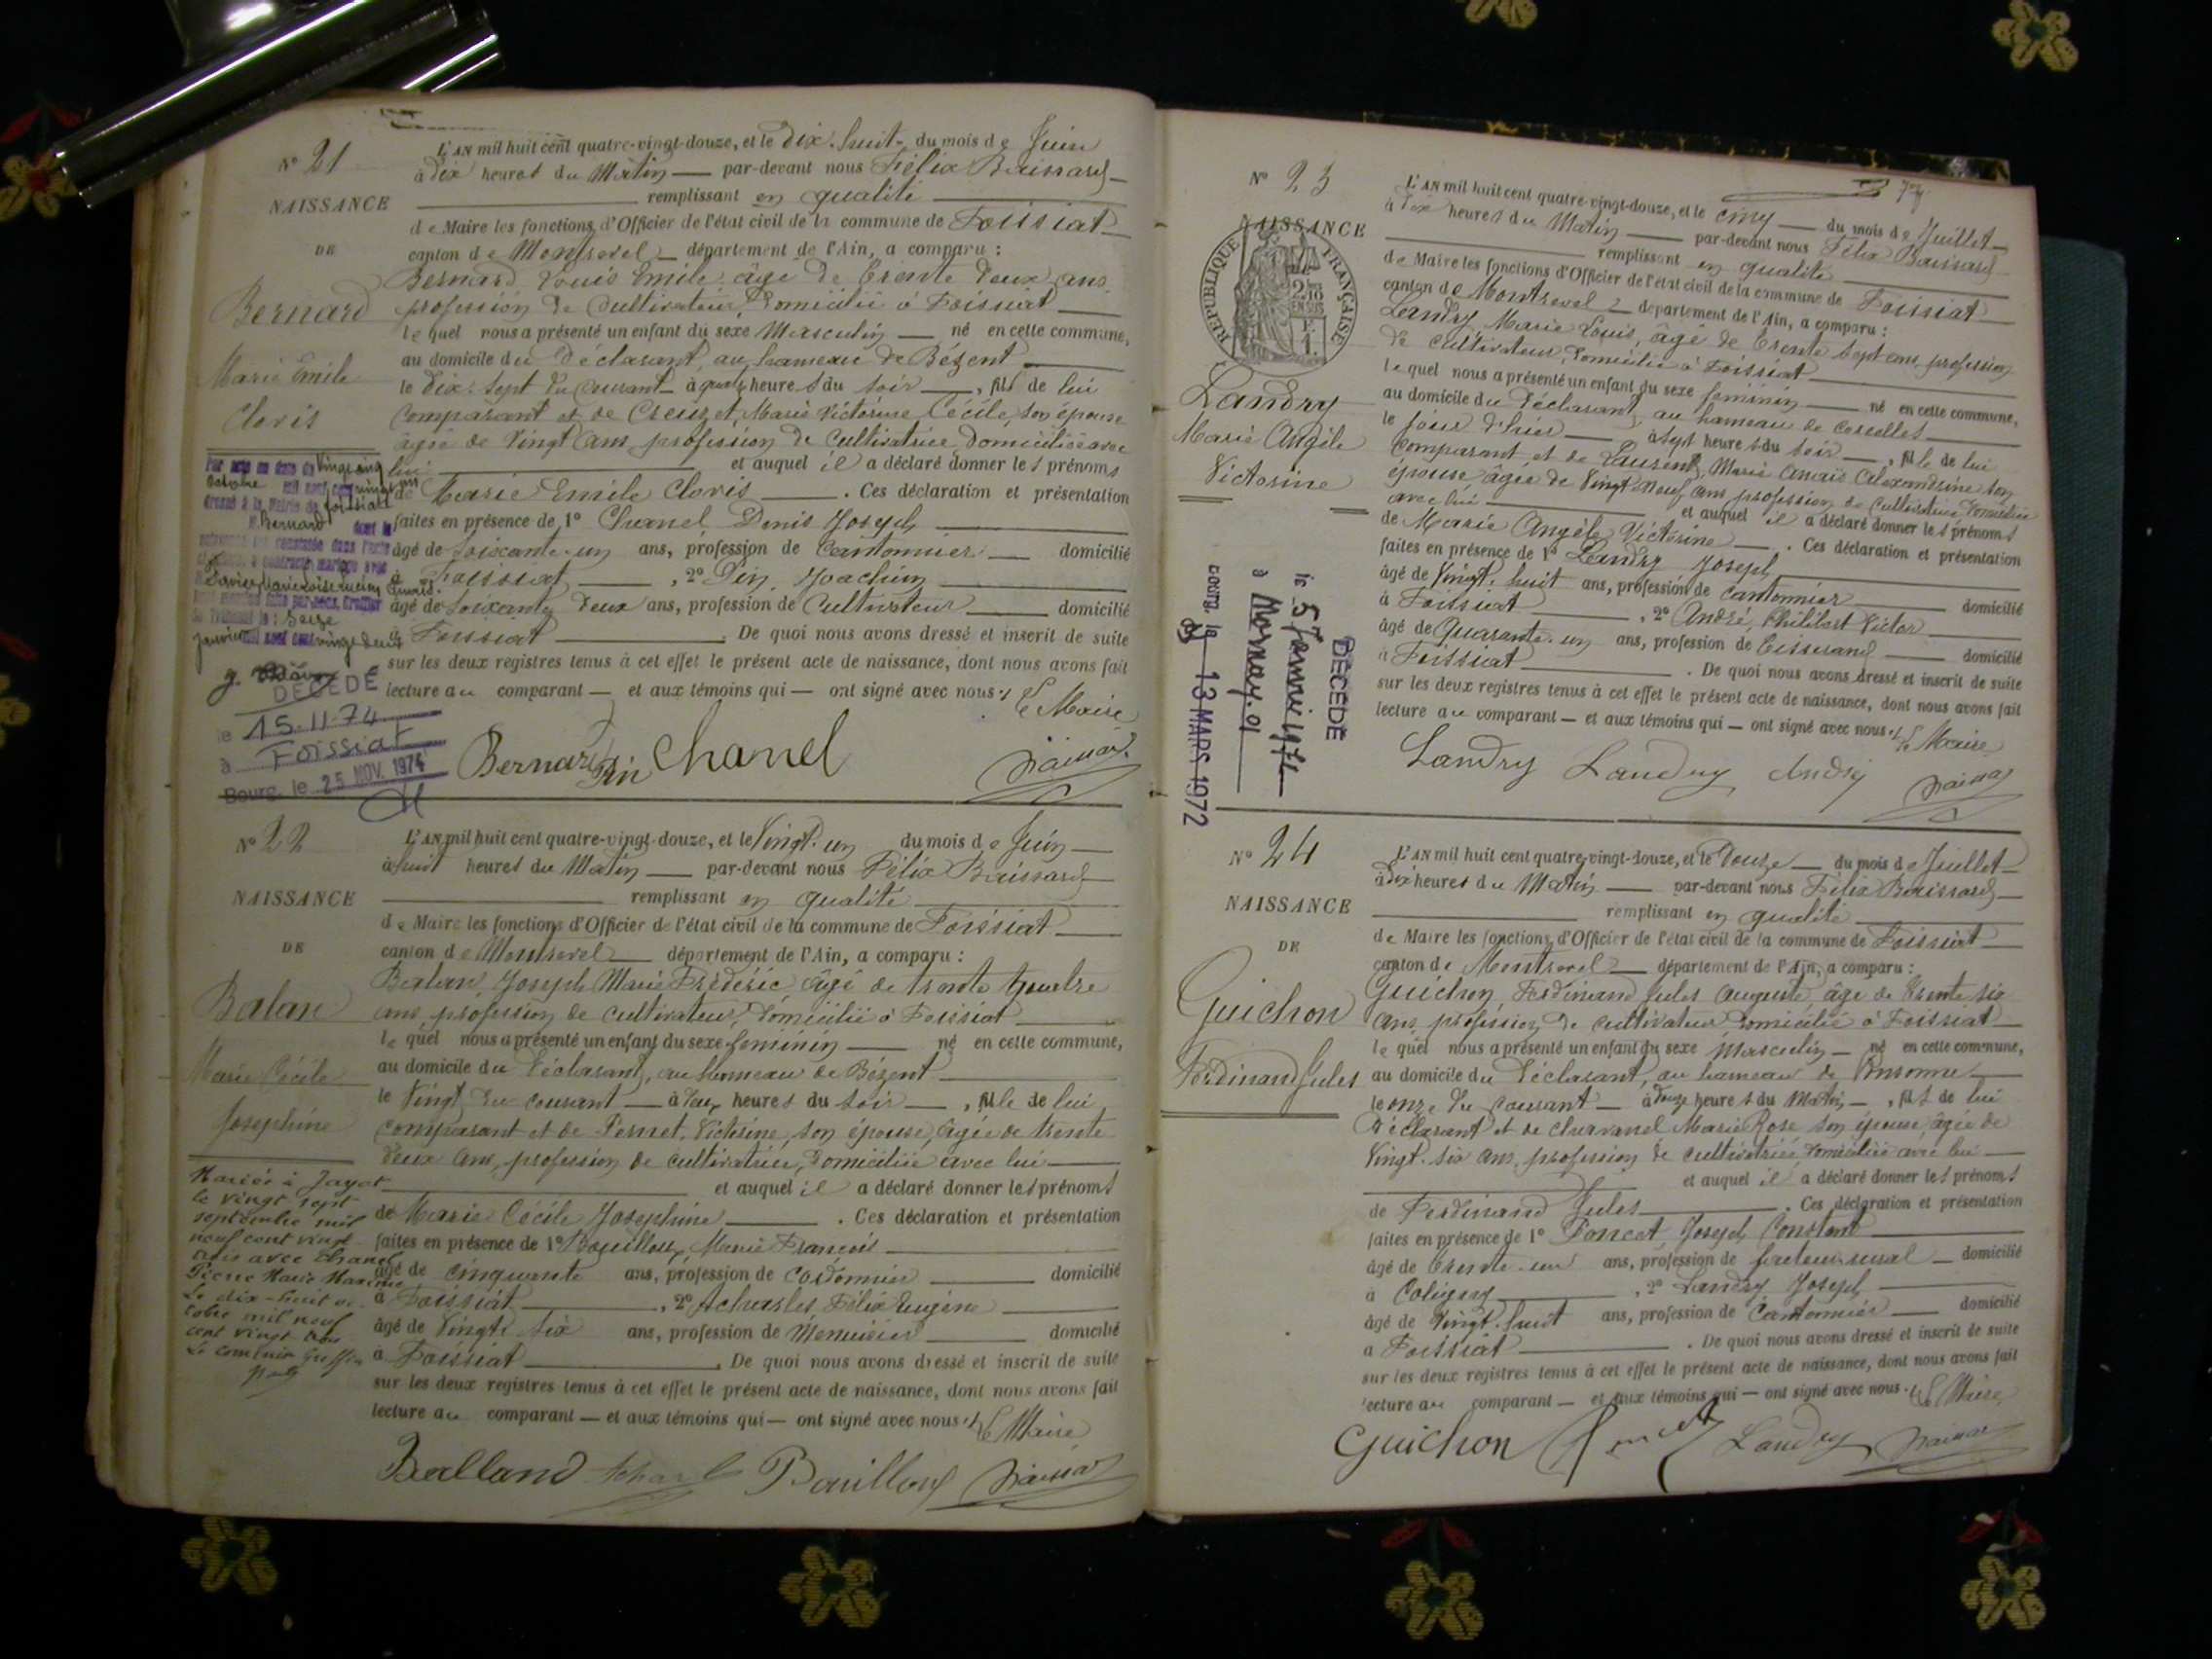 N° 21
NAISSANCE
DE
Bernard
Marie Emile
Cloris
L'AN mil huit cent quatre-vingt-douze, et le dix-huit du mois de Juin
à dix heures du Matin par-devant nous Félix Baissard
remplissant en qualité
de Maire les fonctions d'Officier de l'état civil de la commune de Foissiat
canton de Montrevel département de l'Ain, a comparu :
Bernard Louis Emile âgé de trente deux ans
profession de Cultivateur, domicilié à Foissiat
lequel nous a présenté un enfant du sexe Masculin né en cette commune,
au domicile du déclarant, au hameau de Bézent
le dix-sept du courant à quatre heures du soir, fils de lui
comparant et de Creuzet, Marie Victorine Cécile, son épouse
âgée de vingt ans profession de cultivatrice domiciliée avec
lui et auquel il a déclaré donner les prénoms
de Marie Emile Cloris. Ces déclaration et présentation
faites en présence de 1° Chanel Denis Joseph
âgé de soixante-un ans, profession de Cantonnier domicilié
à Foissiat, 2° Pin Joachim
âgé de soixante deux ans, profession de Cultivateur domicilié
à Foissiat. De quoi nous avons dressé et inscrit de suite
sur les deux registres tenus à cet effet le présent acte de naissance, dont nous avons fait
lecture au comparant et aux témoins qui ont signé avec nous. Le Maire
Bernard Pin Chanel Baissard
Par acte en date du vingt cinq
octobre mil neuf cent vingt un
dressé à la Mairie de Foissiat
Bernard dont la
naissance est constatée dans l'acte
ci-contre, a contracté mariage avec
janvier mil neuf cent vingt deux
DÉCÉDÉ
le 15.11.74
à Foissiat
Bourg, le 25 NOV. 1974
N° 22
NAISSANCE
DE
Balan
Marie Cécile
Josephine
L'AN mil huit cent quatre-vingt-douze, et le vingt-un du mois de Juin
à huit heures du Matin par-devant nous Félix Baissard
remplissant en qualité
de Maire les fonctions d'Officier de l'état civil de la commune de Foissiat
canton de Montrevel département de l'Ain, a comparu :
Balan, Joseph Marie Frédéric, âgé de trente quatre
ans, profession de cultivateur, domicilié à Foissiat
lequel nous a présenté un enfant du sexe féminin né en cette commune,
au domicile du déclarant, au hameau de Bézent
le vingt du courant à deux heures du soir, fille de lui
comparant et de Pernet, Victorine, son épouse, âgée de trente
deux ans, profession de cultivatrice, domiciliée avec lui
et auquel il a déclaré donner les prénoms
de Marie Cécile Josephine. Ces déclaration et présentation
faites en présence de 1° Bouilloux, Marie François
âgé de cinquante ans, profession de Cordonnier domicilié
à Foissiat, 2° Acharles Félix Eugène
âgé de vingt six ans, profession de Menuisier domicilié
à Foissiat. De quoi nous avons dressé et inscrit de suite
sur les deux registres tenus à cet effet le présent acte de naissance, dont nous avons fait
lecture au comparant et aux témoins qui ont signé avec nous. Le Maire
Balland Acharles Bouilloux Baissard
Mariée à Jayat
le vingt sept
septembre mil
neuf cent vingt
trois avec Chanel
Pierre Marie Maxime
Le dix-huit oc-
tobre mil neuf
cent vingt trois
Le commis Greffier
N° 23
NAISSANCE
RÉPUBLIQUE FRANÇAISE
Landry
Marie Angèle
Victorine
L'AN mil huit cent quatre-vingt-douze, et le cinq du mois de Juillet
à dix heures du Matin par-devant nous Félix Baissard
remplissant en qualité
de Maire les fonctions d'Officier de l'état civil de la commune de Foissiat
canton de Montrevel département de l'Ain, a comparu :
Landry, Marie Louis, âgé de trente sept ans, profession
de cultivateur, domicilié à Foissiat
lequel nous a présenté un enfant du sexe féminin né en cette commune,
au domicile du déclarant, au hameau de Corcelles
le jour d'hier à sept heures du soir, fille de lui
comparant et de Laurent, Marie Anaïs Alexandrine son
épouse âgée de vingt-neuf ans profession de cultivatrice domiciliée
avec lui et auquel il a déclaré donner les prénoms
de Marie Angèle Victorine. Ces déclaration et présentation
faites en présence de 1° Landry Joseph
âgé de vingt-huit ans, profession de cantonnier domicilié
à Foissiat, 2° André, Philibert Victor
âgé de Quarante-un ans, profession de Tisserand domicilié
à Foissiat. De quoi nous avons dressé et inscrit de suite
sur les deux registres tenus à cet effet le présent acte de naissance, dont nous avons fait
lecture au comparant et aux témoins qui ont signé avec nous. Le Maire
Landry Landry André Baissard
DÉCÉDÉ
le 5 Janvier 1972
à Mornay. 01
BOURG, le 13 MARS 1972
N° 24
NAISSANCE
DE
Guichon
Ferdinand Jules
L'AN mil huit cent quatre-vingt-douze, et le douze du mois de Juillet
à dix heures du Matin par-devant nous Félix Baissard
remplissant en qualité
de Maire les fonctions d'Officier de l'état civil de la commune de Foissiat
canton de Montrevel département de l'Ain, a comparu :
Guichon, Ferdinand Jules Auguste, âgé de trente six
ans, profession de cultivateur domicilié à Foissiat
lequel nous a présenté un enfant du sexe Masculin né en cette commune,
au domicile du déclarant, au hameau de
le onze du courant à douze heures du Matin, fils de lui
déclarant et de Charvanel Marie Rose son épouse âgée de
Vingt-six ans, profession de cultivatrice domiciliée avec lui
et auquel il a déclaré donner les prénoms
de Ferdinand Jules. Ces déclaration et présentation
faites en présence de 1° Poncet Joseph Constant
âgé de trente-un ans, profession de facteur rural domicilié
à Coligny, 2° Landry Joseph
âgé de vingt-huit ans, profession de Cantonnier domicilié
à Foissiat. De quoi nous avons dressé et inscrit de suite
sur les deux registres tenus à cet effet le présent acte de naissance, dont nous avons fait
lecture au comparant et aux témoins qui ont signé avec nous. Le Maire
Guichon Poncet Landry Baissard